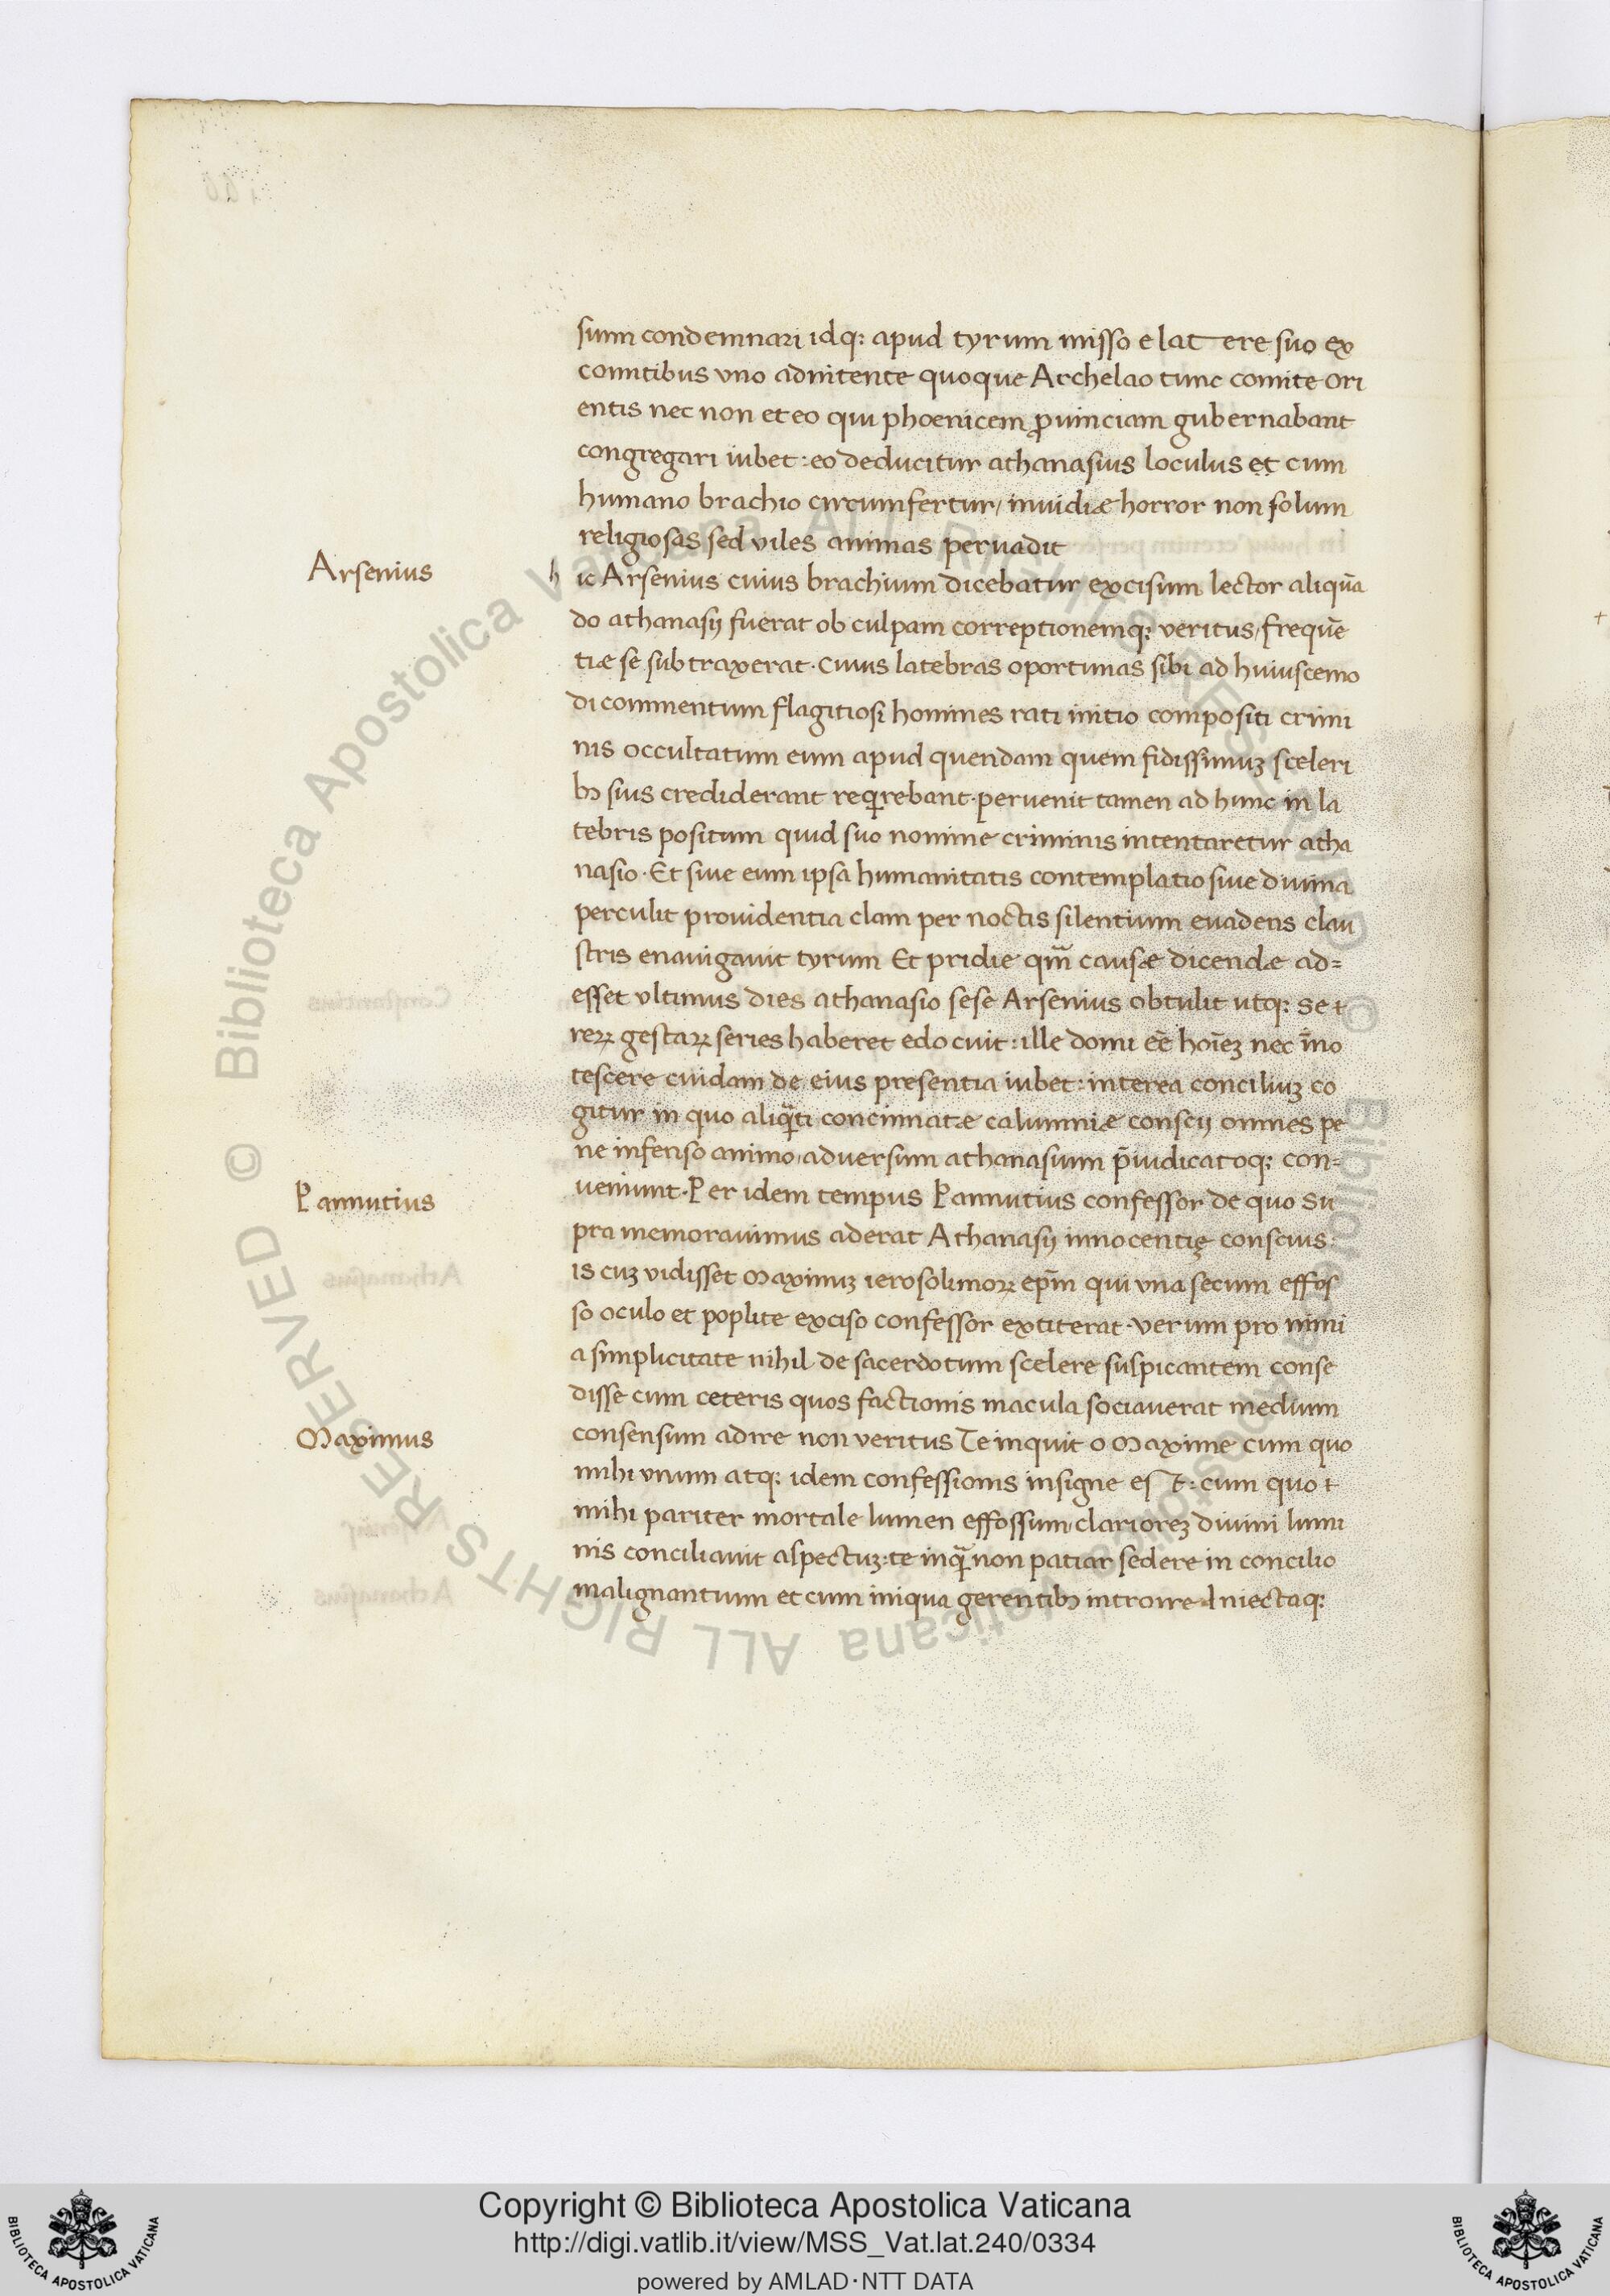 sum condemnari idq: apud tyrum misso e latere suo ex
comitibus vno adnitente quoque Archelao tunc comite ori
entis nec non et eo qui phoenicem ꝓuinciam gubernabant
congregari iubet: eo deducitur athanasius loculus et cum
humano brachio circumfertur/ inuidiæ horror non solum
religiosas sed viles animas peruadit
Arsenius
hic Arsenius cuius brachium dicebatur excisum lector aliquā
do athanasij fuerat ob culpam correptionemq: veritus/ frequē
tiæ se subtraxerat· cuius latebras oportunas sibi ad huiuscemo
di commentum flagitiosi homines rati initio compositi crimi
nis occultatum eum apud quendam quem fidissimuꝫ sceleri
bꝫ suis crediderant reqͥrebant· peruenit tamen ad hunc in la
tebris positum quid suo nomine criminis intentaretur atha
nasio· Et siue eum ipsa humanitatis contemplatio siue diuina
perculit prouidentia clam per noctis silentium euadens clau
stris enauigauit tyrum Et pridie qm̄ causæ dicendæ ad=
esset vltimus dies athanasio sese Arsenius obtulit utq: se ⁊
reꝝ gestaꝝ series haberet edocuit: ille domi eē hoīeꝫ nec īno
tescere cuidam de eius presentia iubet: interea conciliuꝫ co
gitur in quo aliqͣti concinnatæ calumniæ conscij omnes pe
ne infenso animo adversum athanasium p̄iudicatoq: con=
ueniunt· Per idem tempus Pannutius confessor de quo su
Pannutius
pra memorauimus aderat Athanasij innocentię conscius:
is cuꝫ vidisset Maximuꝫ ierosolimoꝝ ep̄m qui vna secum effos
so oculo et poplite exciso confessor extiterat· verum pro nimi
a simplicitate nihil de sacerdotum scelere suspicantem conse
disse cum ceteris quos factionis macula sociauerat medium
Maximus
consensum adire non veritus Te inquit o Maxime cum quo
mihi vnum atq: idem confessionis insigne est: cum quo ⁊
mihi pariter mortale lumen effossum/ clarioreꝫ diuini lumi
nis conciliauit aspectuꝫ: te inqͣ non patiar sedere in concilio
malignantium et cum iniqua gerentibꝫ introire Iniectaq:
© Biblioteca Apostolica Vaticana ALL RIGHTS RESERVED
Copyright © Biblioteca Apostolica Vaticana
http://digi.vatlib.it/view/MSS_Vat.lat.240/0334
powered by AMLAD·NTT DATA
BIBLIOTECA APOSTOLICA VATICANA
BIBLIOTECA APOSTOLICA VATICANA